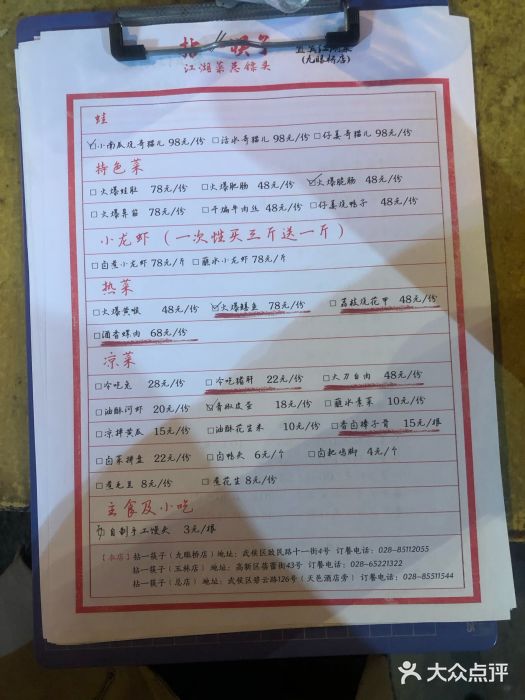 拈一筷子
江湖菜总馆头
(九眼桥店)
蛙
小南瓜烧奇猫儿 98元/份 活水奇猫儿 98元/份 仔姜奇猫儿 98元/份
特色菜
火爆蛙肚 78元/份 火爆肥肠 48元/份 火爆脆肠 48元/份
火爆鼻筋 78元/份 干煸牛肉丝 48元/份 仔姜烧鸭子 48元/份
小龙虾（一次性买三斤送一斤）
卤煮小龙虾 78元/斤 蘸水小龙虾 78元/斤
热菜
火爆黄喉 48元/份 火爆鳝鱼 78元/份 荔枝烧花甲 48元/份
酒香螺肉 68元/份
凉菜
冷吃兔 28元/份 冷吃猪肝 22元/份 大刀白肉 48元/份
油酥河虾 20元/份 青椒皮蛋 18元/份 蘸水素菜 10元/份
凉拌黄瓜 15元/份 油酥花生米 10元/份 香卤棒子骨 15元/根
卤菜拼盘 22元/份 卤鸭头 6元/个 卤耙鸡脚 4元/个
煮毛豆 8元/份 煮花生 8元/份
主食及小吃
自制手工馒头 3元/根
【本店】拈一筷子（九眼桥店）地址：武侯区致民路十一街4号 订餐电话：028-85112055
拈一筷子（玉林店）地址：高新区蓓蕾街43号 订餐电话：028-65221322
拈一筷子（总店）地址：武侯区碧云路126号（天邑酒店旁）订餐电话：028-85511544
大众点评